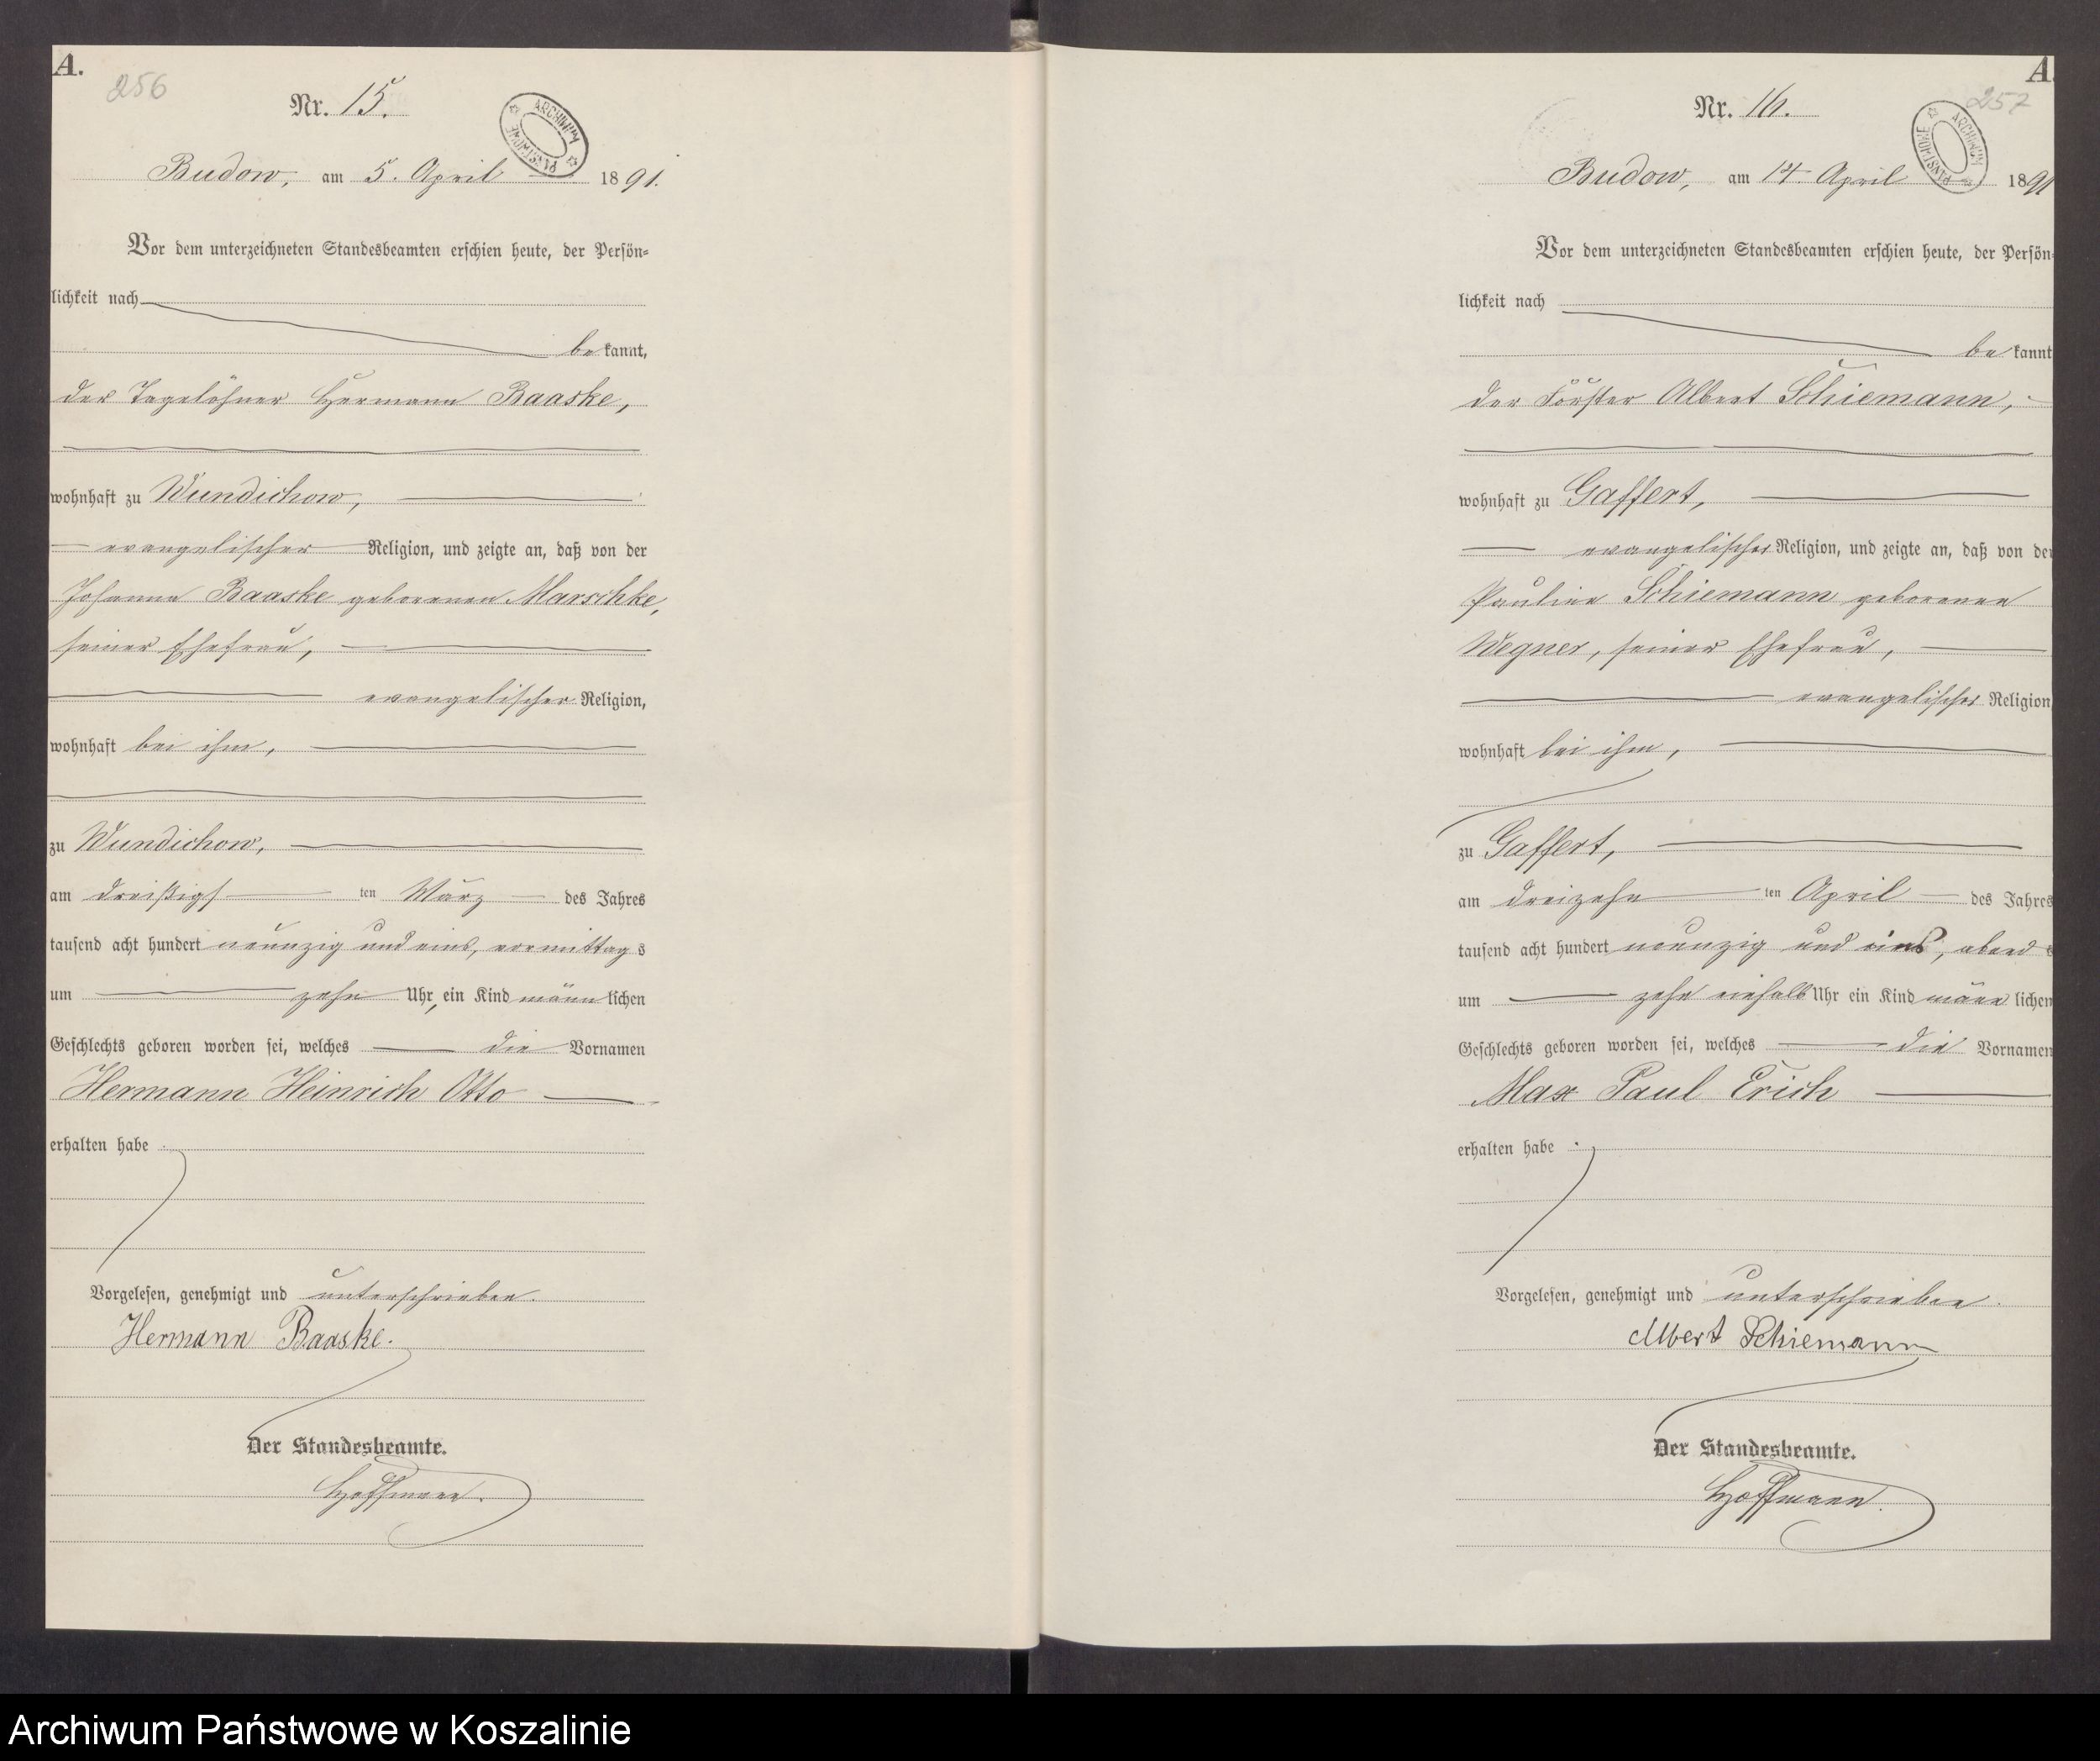 A.
256
Nr. 15.
ARCHIWUM PAŃSTWOWE
Budow, am 5. April 1891.
Vor dem unterzeichneten Standesbeamten erschien heute, der Persön=
lichkeit nach
be kannt,
der Tagelöhner Hermann Baaske,
wohnhaft zu Wundichow,
evangelischer Religion, und zeigte an, daß von der
Johanna Baaske geborenen Marschke,
seiner Ehefrau,
evangelischer Religion,
wohnhaft bei ihm,
zu Wundichow,
am dreißigs ten März des Jahres
tausend acht hundert neunzig und eins, vormittag s
um zehn Uhr, ein Kind männ lichen
Geschlechts geboren worden sei, welches die Vornamen
Hermann Heinrich Otto
erhalten habe.
Vorgelesen, genehmigt und unterschrieben.
Hermann Baaske.
Der Standesbeamte.
Hoffmann.
A.
257
Nr. 16.
ARCHIWUM PAŃSTWOWE
Budow, am 14. April 1891
Vor dem unterzeichneten Standesbeamten erschien heute, der Persön=
lichkeit nach
be kannt
der Förster Albert Schiemann,
wohnhaft zu Gaffert,
evangelischer Religion, und zeigte an, daß von der
Pauline Schiemann geborenen
Wegner, seiner Ehefrau,
evangelischer Religion
wohnhaft bei ihm,
zu Gaffert,
am dreizehn ten April des Jahres
tausend acht hundert neunzig und eins, abend s
um zehn einhalb Uhr ein Kind männ lichen
Geschlechts geboren worden sei, welches die Vornamen
Max Paul Erich
erhalten habe.
Vorgelesen, genehmigt und unterschrieben.
Albert Schiemann
Der Standesbeamte.
Hoffmann.
Archiwum Państwowe w Koszalinie